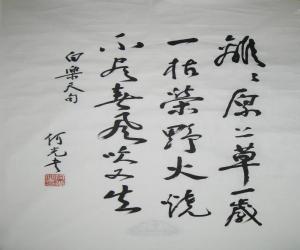 離〻原上草一歲
一枯榮野火燒
不尽春風吹又生
白樂天句
何光年